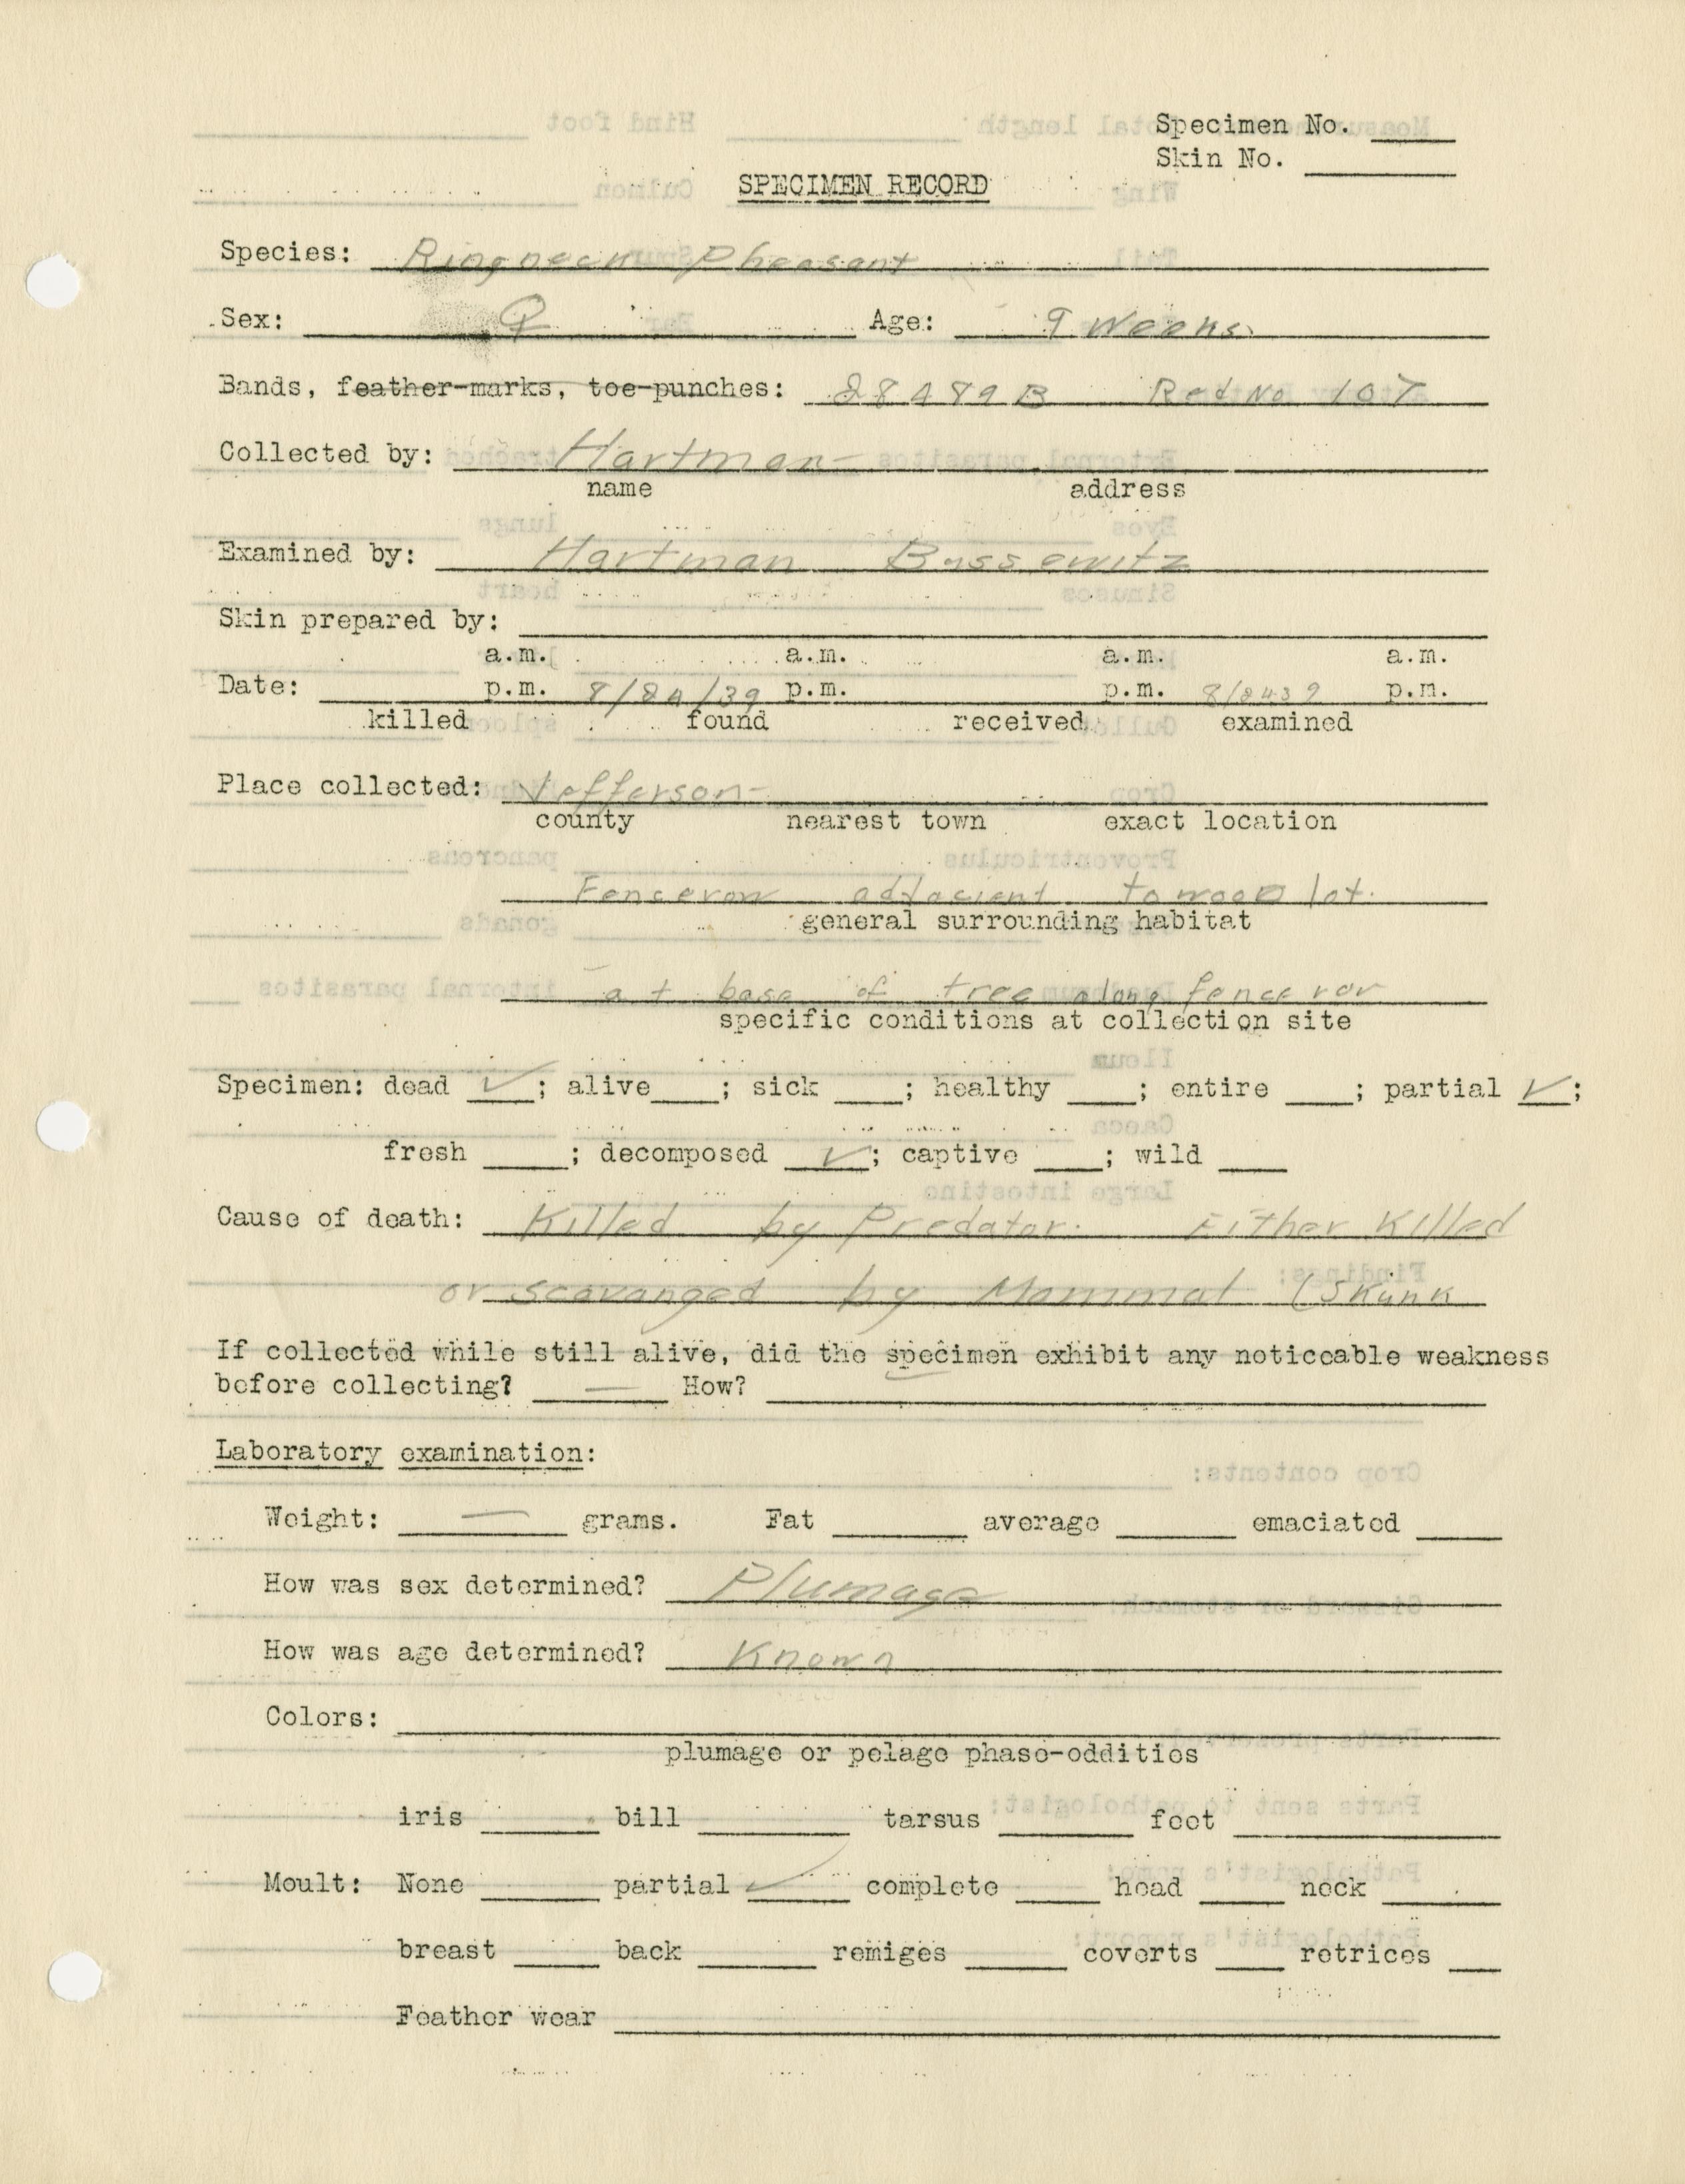 Specimen No. ____
Skin No. ____
SPECIMEN RECORD
Species: Ringneck Pheasant
Sex: ♀ Age: 9 Weeks.
Bands, feather-marks, toe-punches: 28489B Red No 107
Collected by: Hartman
name address
Examined by: Hartman Bussewitz
Skin prepared by:
a.m. a.m. a.m. a.m.
Date: p.m. 8/24/39 p.m. p.m. 8/2439 p.m.
killed found received examined
Place collected: Jefferson
county nearest town exact location
Fencerow adjacient to wood lot.
general surrounding habitat
at base of tree along fence ror
specific conditions at collection site
Specimen: dead ✓; alive ; sick ; healthy ; entire ; partial ✓;
fresh ; decomposed ✓; captive ; wild
Cause of death: Killed by Predator. Either Killed
or scavanged by Mammal (Skunk
If collected while still alive, did the specimen exhibit any noticeable weakness
before collecting? — How?
Laboratory examination:
Weight: — grams. Fat average emaciated
How was sex determined? Plumage
How was age determined? Known
Colors:
plumage or pelage phase-oddities
iris bill tarsus foot
Moult: None partial ✓ complete head neck
breast back remiges coverts retrices
Feather wear